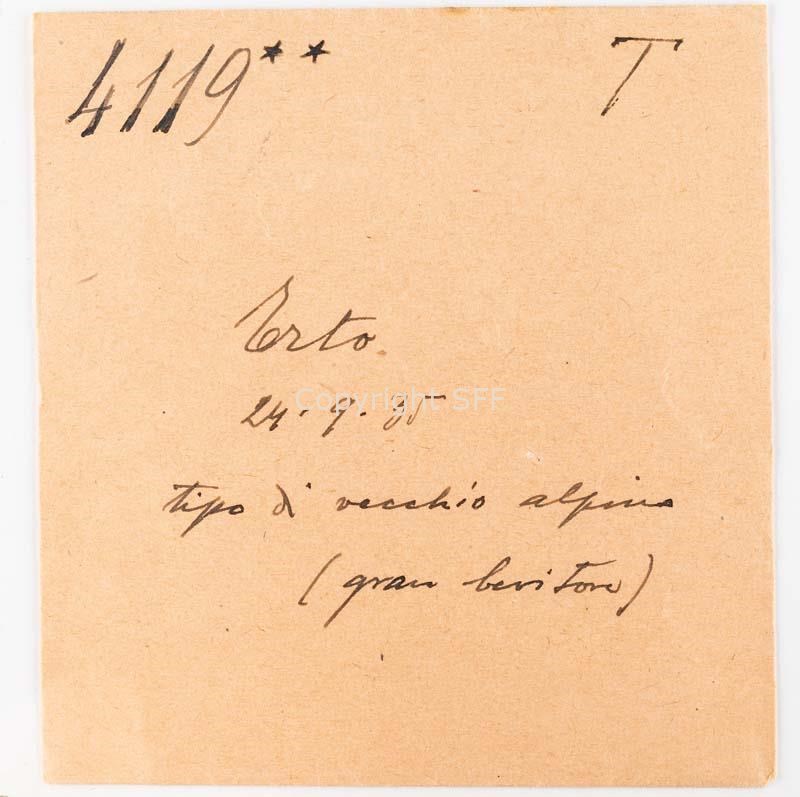 4119** T
Erto
24.9.
Copyright SFF
tipo di vecchio alpino
(gran bevitore)